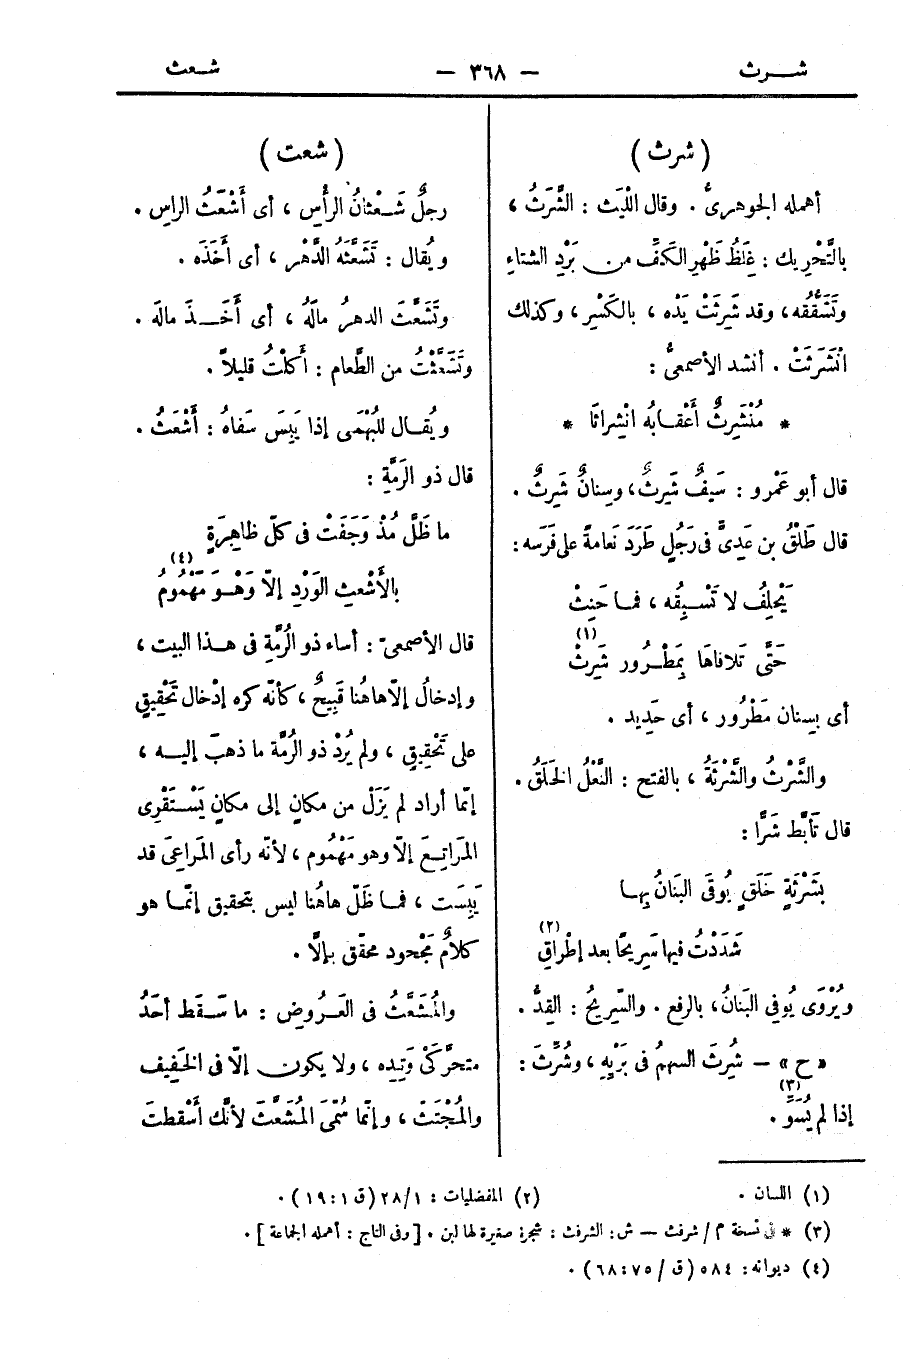 شـــرث
— ٣٦٨ —
شـعث
( شرث )
أهمله الجوهرىُّ . وقال اللَّيث : الشَّرَثُ ،
بالتَّحْرِيك : غِلَظُ ظَهْرِ الكَفِّ من بَرْدِ الشتاءِ
وتَشَقُّقُه ، وقد شَرِثَتْ يَدُه ، بالكَسْرِ ، وكذلك
انْشَرَثَتْ . أنشد الأصمعىُّ :
* مُنْشَرِثٌ أَعْقــابُه انْشِراثَا *
قال أبو عَمْرو : سَيفٌ شَرِثٌ ، وسِنانٌ شَرِثٌ .
قال طَلْقُ بن عَدِىٍّ فى رَجُلٍ طَرَدَ نَعامةً على فَرَسه :
يَحْلِفُ لا تَسْـبِقُه ، فمـا حَنِثْ
حَتَّى تَلافاهَا بِمَطْـرُورٍ شَرِثْ (١)
أى بِسِنان مَطْرُور ، أى حَدِيد .
والشَّرْثُ والشَّرْثَةُ ، بالفتح : النَّعْلُ الخَلَقُ .
قال تَأَبَّط شَرًّا :
بشَرْثَةٍ خَلَقٍ يُوقَى البَنانُ بِهـا
شَدَدْتُ فيها سَرِيحًا بعد إطْراقِ (٢)
ويُرْوَى يُوفى البَنانُ ، بالرفع . والسَّرِيحُ : القِدُّ .
« ح » — شُرِثَ السهمُ فى بَرْيِهِ ، وشُرِّثَ :
إذا لم يُسَوَّ . (٣)
( شعث )
رجلٌ شَـعْثانُ الرأْسِ ، أى أَشْعَثُ الراسِ .
ويُقال : تَشَعَّثَهُ الدَّهْر ، أى أخَذَه .
وتَشَعَّثَ الدهرُ مالَهُ ، أى أَخَـــذَ مالَه .
وتَشَعَّثْتُ من الطَّعام : أَكلْتُ قليلاً .
ويُقـال للبُهْمَى إذا يَبِسَ سَفاهُ : أَشْعَثُ .
قال ذو الرُمَّةِ :
ما ظَلَّ مُذْ وَجَفَتْ فى كلّ ظاهِرَةٍ
بالأَشْعثِ الوَرْدِ إلاّ وَهْـوَ مَهْمُومُ (٤)
قال الأصمعىّ : أساء ذو الرُمَّةِ فى هـذا البيت ،
وإدخالُ إلاّ هاهُنا قَبِيحٌ ، كأنّه كره إدْخال تَحْقِيقٍ
على تَحْقِيقٍ ، ولم يُرِدْ ذو الرُمَّة ما ذهبَ إليــه ،
إنّما أراد لم يَزَلْ من مكانٍ إلى مكانٍ يَسْـتَقْرِى
المَراتِــعَ إلاّ وهو مَهْمُوم ، لأنّه رأى المَراعِىَ قد
يَبِسَت ، فمـا ظَلّ هاهُنا ليس بتحقيق إنّمـا هو
كلامٌ مَجْحود محقّق بإلاَّ .
والمُشَعَّثُ فى العَــرُوضِ : ما سَـقَط أحدُ
متحرَّكَىْ وَتِدِه ، ولا يكون إلاّ فى الخَفِيف
والمُجْتَثّ ، وإنّما سُمِّىَ المُشَعَّثَ لأنَّك أسْقطتَ
(١) اللسان .
(٢) المفضليات : ٢٨/١ (ق ١ : ١٩) .
(٣) * فى نسخة م / شرفث — ش : الشرفث : شجرة صغيرة لها لبن . [ وفى التاج : أهمله الجماعة ] .
(٤) ديوانه : ٥٨٤ (ق / ٧٥ : ٦٨) .